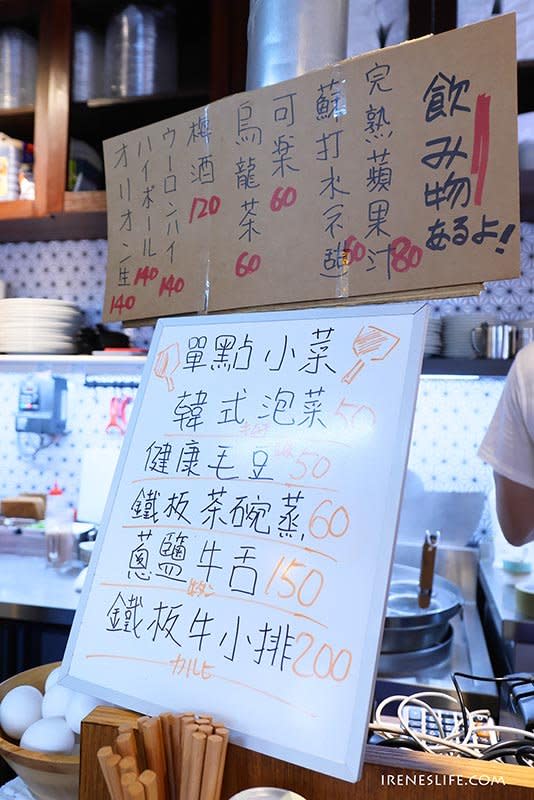 飲み物
あるよ!
完熟蘋果汁 80
蘇打水(不甜) 60
可楽 60
烏龍茶 60
梅酒 120
ウーロンハイ 140
ハイボール 140
オリオン生 140
單點小菜
韓式泡菜 50
健康毛豆 50
鐵板茶碗蒸 60
蔥鹽牛舌 150
牛タン
鐵板牛小排 200
カルビ
IRENESLIFE.COM